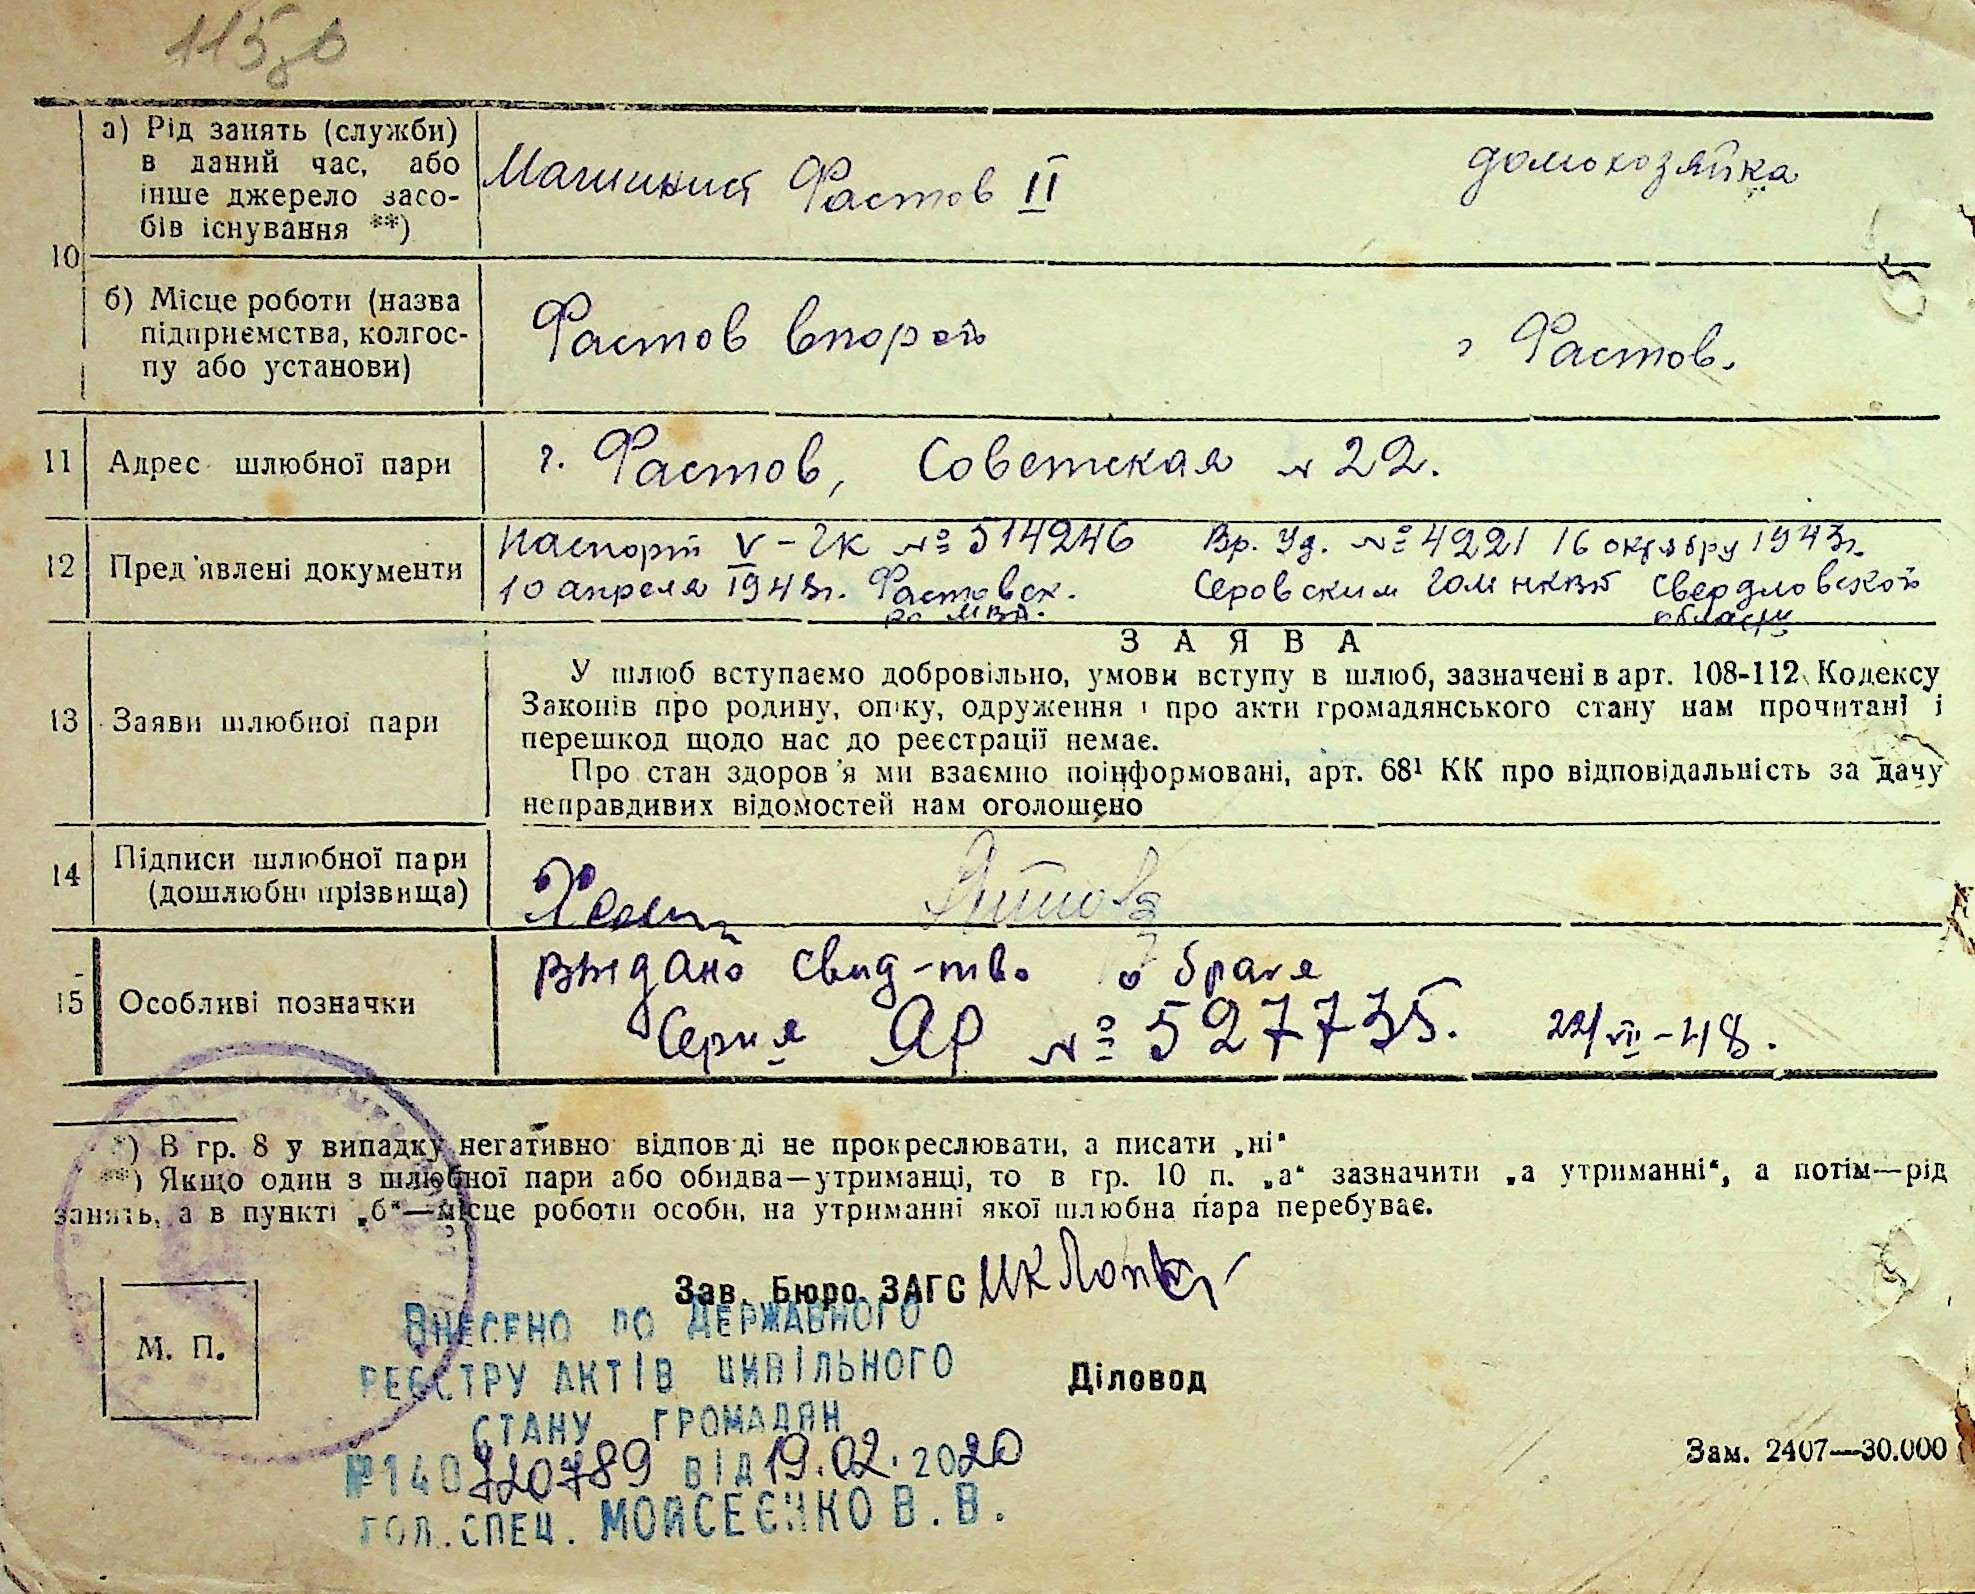 а) Рід занять (служби)
в даний час, або
інше джерело засо-
бів існування **)
Машинист Фастов II
домохозяйка
10
б) Місце роботи (назва
підприємства, колгос-
пу або установи)
Фастов второй
г Фастов.
11 Адрес шлюбної пари
г. Фастов, Советская № 22.
12 Пред'явлені документи
паспорт V-ЧК № 514246
10 апреля 1948г. Фастовск.
ро МВД.
Вр. Уд. № 4221 16 октября 1943г.
Серовским ГОМ НКВД Свердловской
области
13 Заяви шлюбної пари
ЗАЯВА
У шлюб вступаємо добровільно, умови вступу в шлюб, зазначені в арт. 108-112 Кодексу
Законів про родину, опіку, одруження і про акти громадянського стану нам прочитані і
перешкод щодо нас до реєстрації немає.
Про стан здоров'я ми взаємно поінформовані, арт. 68¹ КК про відповідальність за дачу
неправдивих відомостей нам оголошено
14 Підписи шлюбної пари
(дошлюбні прізвища)
15 Особливі позначки
Выдано свид-тво о браке
Серия ЯР № 527735. 22/VII-48.
*) В гр. 8 у випадку негативної відповіді не прокреслювати, а писати „ні"
**) Якщо один з шлюбної пари або обидва—утриманці, то в гр. 10 п. „а" зазначити „а утриманні", а потім—рід
занять, а в пункті „б"—місце роботи особи, на утриманні якої шлюбна пара перебуває.
Зав. Бюро ЗАГС
М. П.
Діловод
ВНЕСЕНО ДО ДЕРЖАВНОГО
РЕЄСТРУ АКТІВ ЦИВІЛЬНОГО
СТАНУ ГРОМАДЯН
№140720789 від 19.02.2020
ГОЛ. СПЕЦ. МОЙСЕЄНКО В. В.
Зам. 2407—30.000